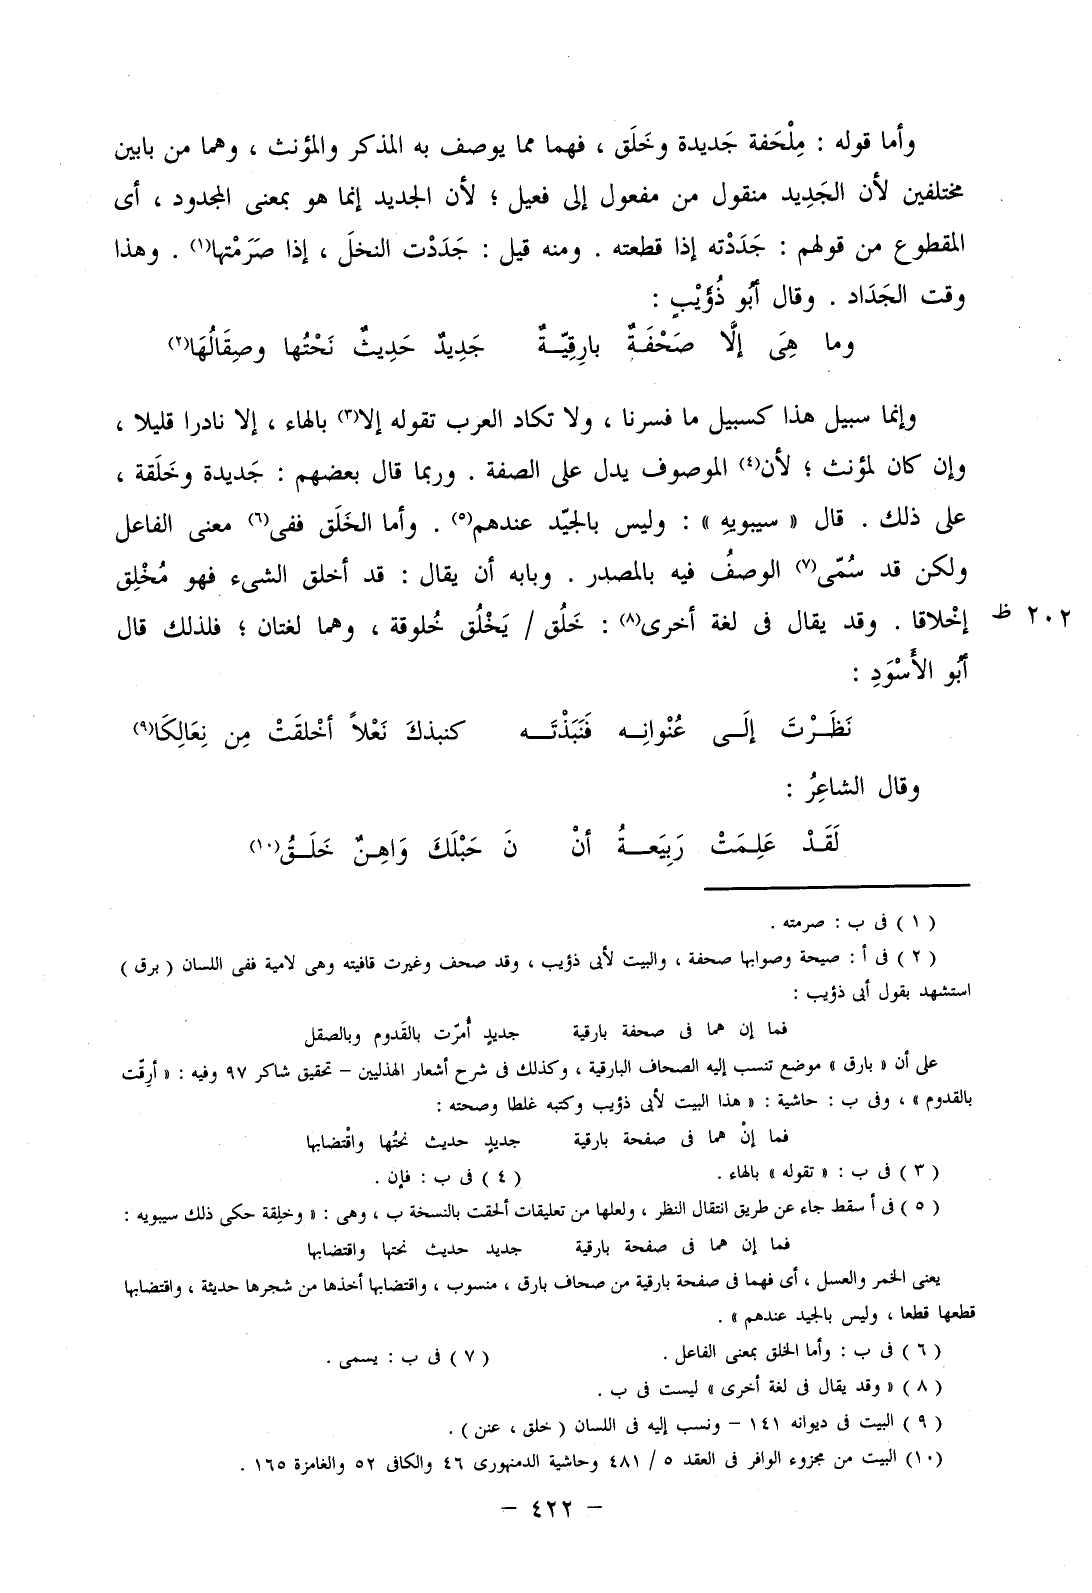 وأما قوله : مِلْحَفة جَديدة وخَلَق ، فهما مما يوصف به المذكر والمؤنث ، وهما من بابين
مختلفين لأن الجَدِيد منقول من مفعول إلى فعيل ؛ لأن الجديد إنما هو بمعنى المجدود ، أى
المقطوع من قولهم : جَدَدْته إذا قطعته . ومنه قيل : جَدَدْت النخلَ ، إذا صَرَمْتها(١) . وهذا
وقت الجَدَاد . وقال أبُو ذُؤَيْبٍ :
وما هِىَ إلَّا صَحْفَةٌ بارِقِيّــةٌ جَدِيدٌ حَدِيثٌ نَحْتُها وصِقَالُهَا(٢)
وإنما سبيل هذا كسبيل ما فسرنا ، ولا تكاد العرب تقوله إلا(٣) بالهاء ، إلا نادرا قليلا ،
وإن كان لمؤنث ؛ لأن(٤) الموصوف يدل على الصفة . وربما قال بعضهم : جَديدة وخَلَقة ،
على ذلك . قال « سيبويهِ » : وليس بالجيّد عندهم(٥) . وأما الخَلَق ففى(٦) معنى الفاعل
ولكن قد سُمّى(٧) الوصفُ فيه بالمصدر . وبابه أن يقال : قد أخلق الشىء فهو مُخْلِق
٢٠٢ ظ إخْلاقا . وقد يقال فى لغة أخرى(٨) : خَلُق / يَخْلُق خُلوقة ، وهما لغتان ؛ فلذلك قال
أبُو الأَسْوَدِ :
نَظَــرْتَ إلَــى عُنْوانِــه فَنَبَذْتَــه كنبذكَ نَعْلاً أخْلقَتْ مِن نِعَالِكَا(٩)
وقال الشاعِرُ :
لَقَــدْ عَلِــمَتْ رَبِيَعــةُ أنْ نَ حَبْلَكَ وَاهِــنٌ خَلَــقُ(١٠)
( ١ ) فى ب : صرمته .
( ٢ ) فى أ : صيحة وصوابها صحفة ، والبيت لأبى ذؤيب ، وقد صحف وغيرت قافيته وهى لامية ففى اللسان ( برق )
استشهد بقول أبى ذؤيب :
فما إن هما فى صحفة بارقية جديدٍ أُمرّت بالقَدوم وبالصقل
على أن « بارق » موضع تنسب إليه الصحاف البارقية ، وكذلك فى شرح أشعار الهذليين – تحقيق شاكر ٩٧ وفيه : « أرِقّت
بالقدوم » ، وفى ب : حاشية : « هذا البيت لأبى ذؤيب وكتبه غلطا وصحته :
فما إنْ هما فى صفحة بارقية جديدٍ حديث نحتُها واقْتضابها
( ٣ ) فى ب : « تقوله » بالهاء . ( ٤ ) فى ب : فإن .
( ٥ ) فى أ سقط جاء عن طريق انتقال النظر ، ولعلها من تعليقات ألحقت بالنسخة ب ، وهى : « وخلِقة حكى ذلك سيبويه :
فما إن هما فى صفحة بارقية جديد حديث نحتها واقتضابها
يعنى الخمر والعسل ، أى فهما فى صفحة بارقية من صحاف بارق ، منسوب ، واقتضابها أخذها من شجرها حديثة ، واقتضابها
قطعها قطعا ، وليس بالجيد عندهم » .
( ٦ ) فى ب : وأما الخلق بمعنى الفاعل . ( ٧ ) فى ب : يسمى .
( ٨ ) « وقد يقال فى لغة أخرى » ليست فى ب .
( ٩ ) البيت فى ديوانه ١٤١ – ونسب إليه فى اللسان ( خلق ، عنن ) .
(١٠) البيت من مجزوء الوافر فى العقد ٥ / ٤٨١ وحاشية الدمنهورى ٤٦ والكافى ٥٢ والغامزة ١٦٥ .
– ٤٢٢ –